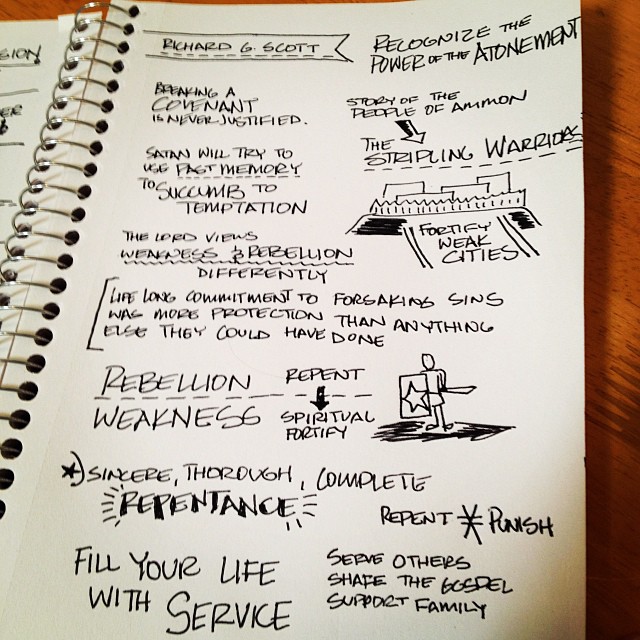 SION
RICHARD G. SCOTT
RECOGNIZE THE
POWER OF THE ATONEMENT
BREAKING A
COVENANT
IS NEVER JUSTIFIED.
STORY OF THE
PEOPLE OF AMMON
THE
STRIPLING WARRIORS
SATAN WILL TRY TO
USE PAST MEMORY
TO SUCCUMB TO
TEMPTATION
FORTIFY
WEAK
CITIES
THE LORD VIEWS
WEAKNESS & REBELLION
DIFFERENTLY
LIFE LONG COMMITMENT TO FORSAKING SINS
WAS MORE PROTECTION THAN ANYTHING
ELSE THEY COULD HAVE DONE
REBELLION
WEAKNESS
REPENT
SPIRITUAL
FORTIFY
SINCERE, THOROUGH, COMPLETE
REPENTANCE
REPENT PUNISH
FILL YOUR LIFE
WITH SERVICE
SERVE OTHERS
SHARE THE GOSPEL
SUPPORT FAMILY